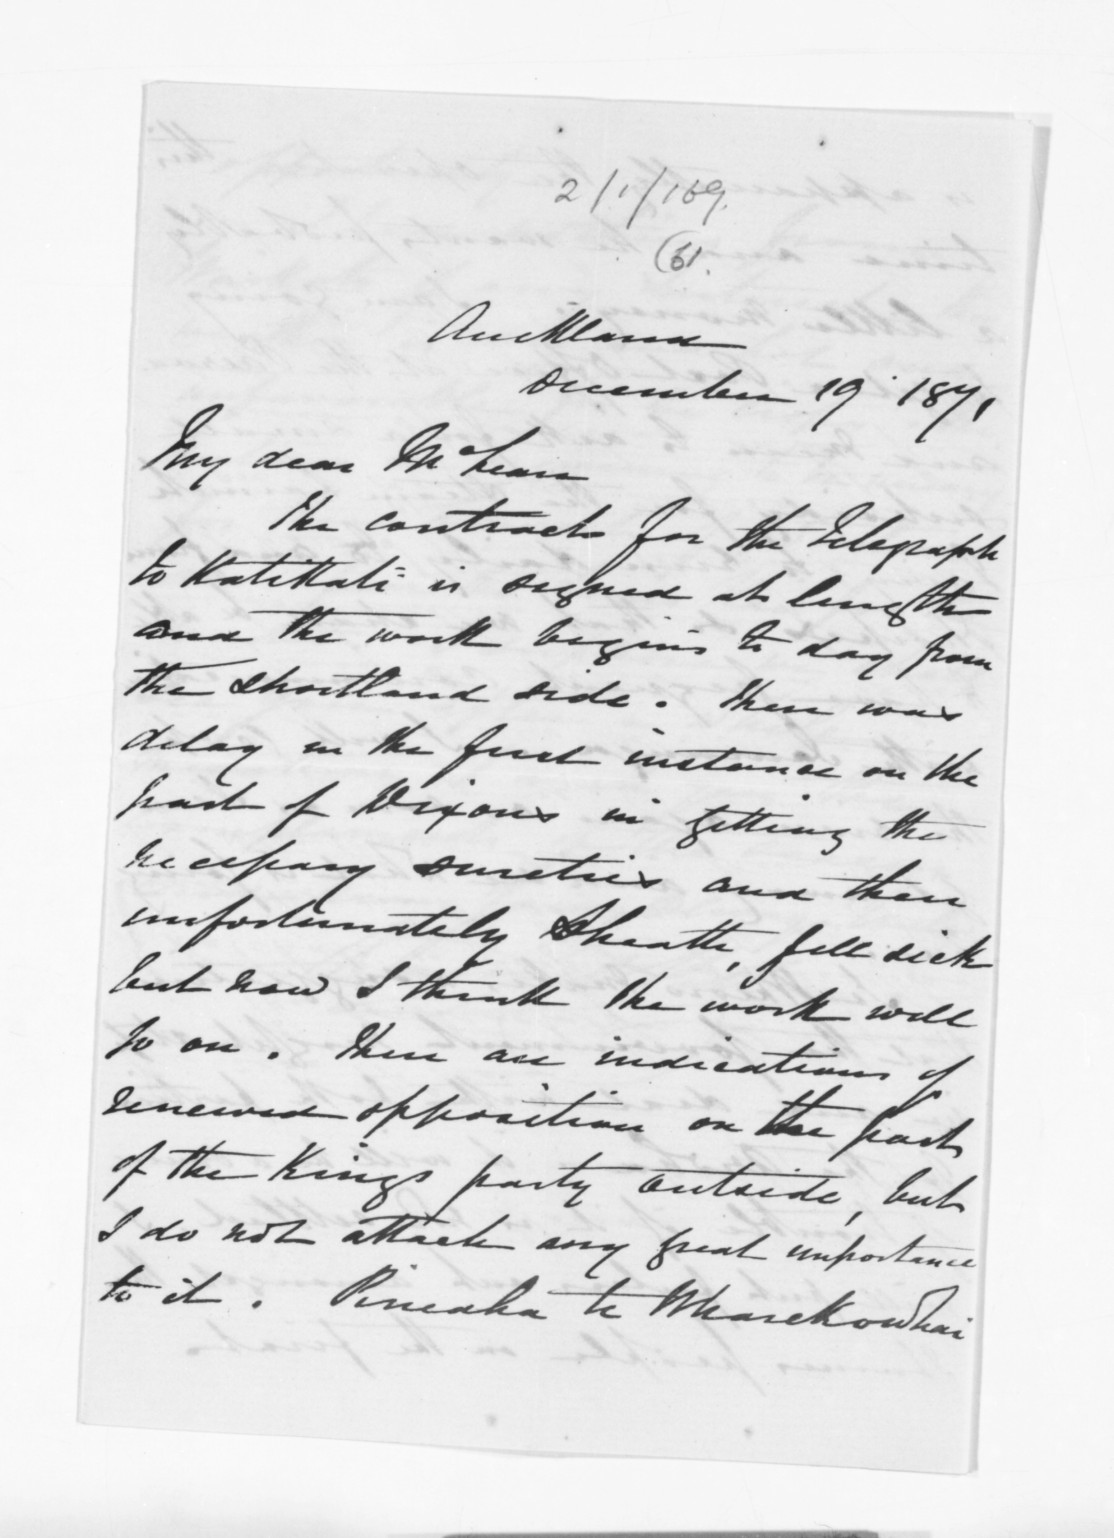 2/1/169.
(61.
Auckland
December 19 1871
My dear McLean
The contract for the Telegraph
to Katikati is signed at length
and the work begins to day from
the Shortland side. There was
delay in the first instance on the
part of Dixons in getting the
necessary sureties and then
unfortunately Sheath, fell sick
but now I think the work will
go on. There are indications of
renewed opposition on the part
of the Kings party outside, but
I do not attach any great importance
to it. Pineaha te Wharekowhai